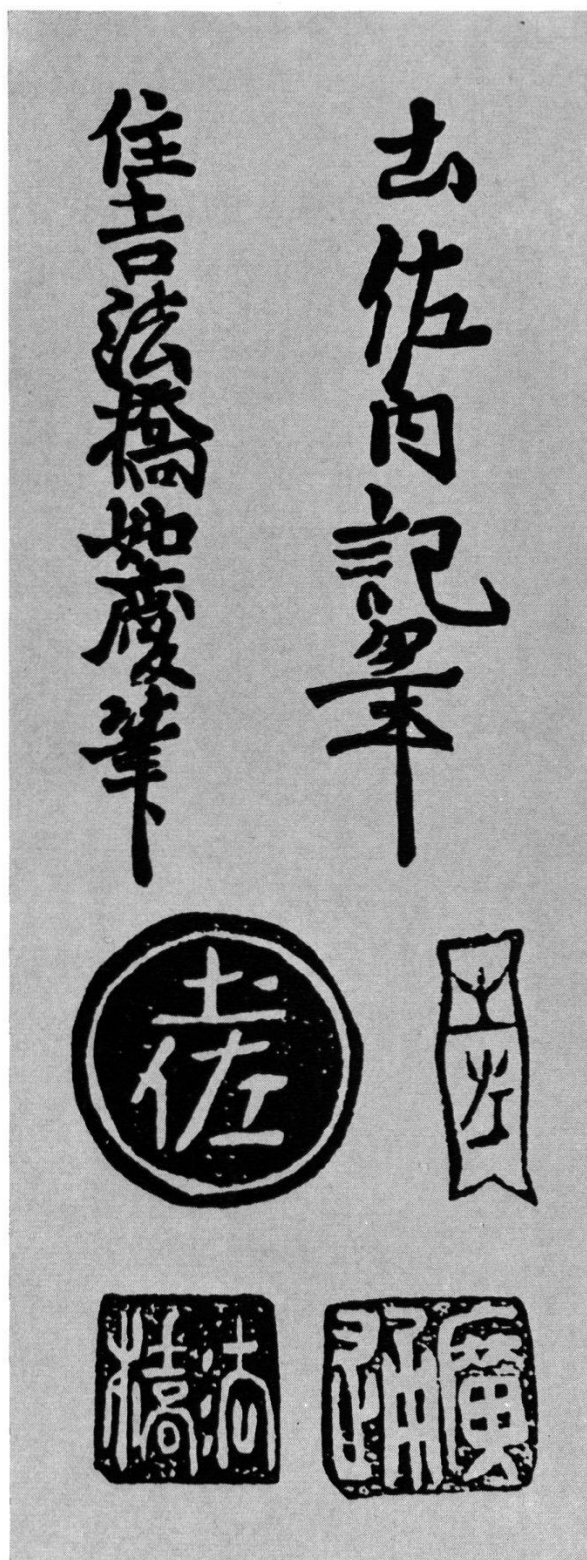 土佐内記筆
住吉法橋如慶筆
土左
土佐
廣通
法橋